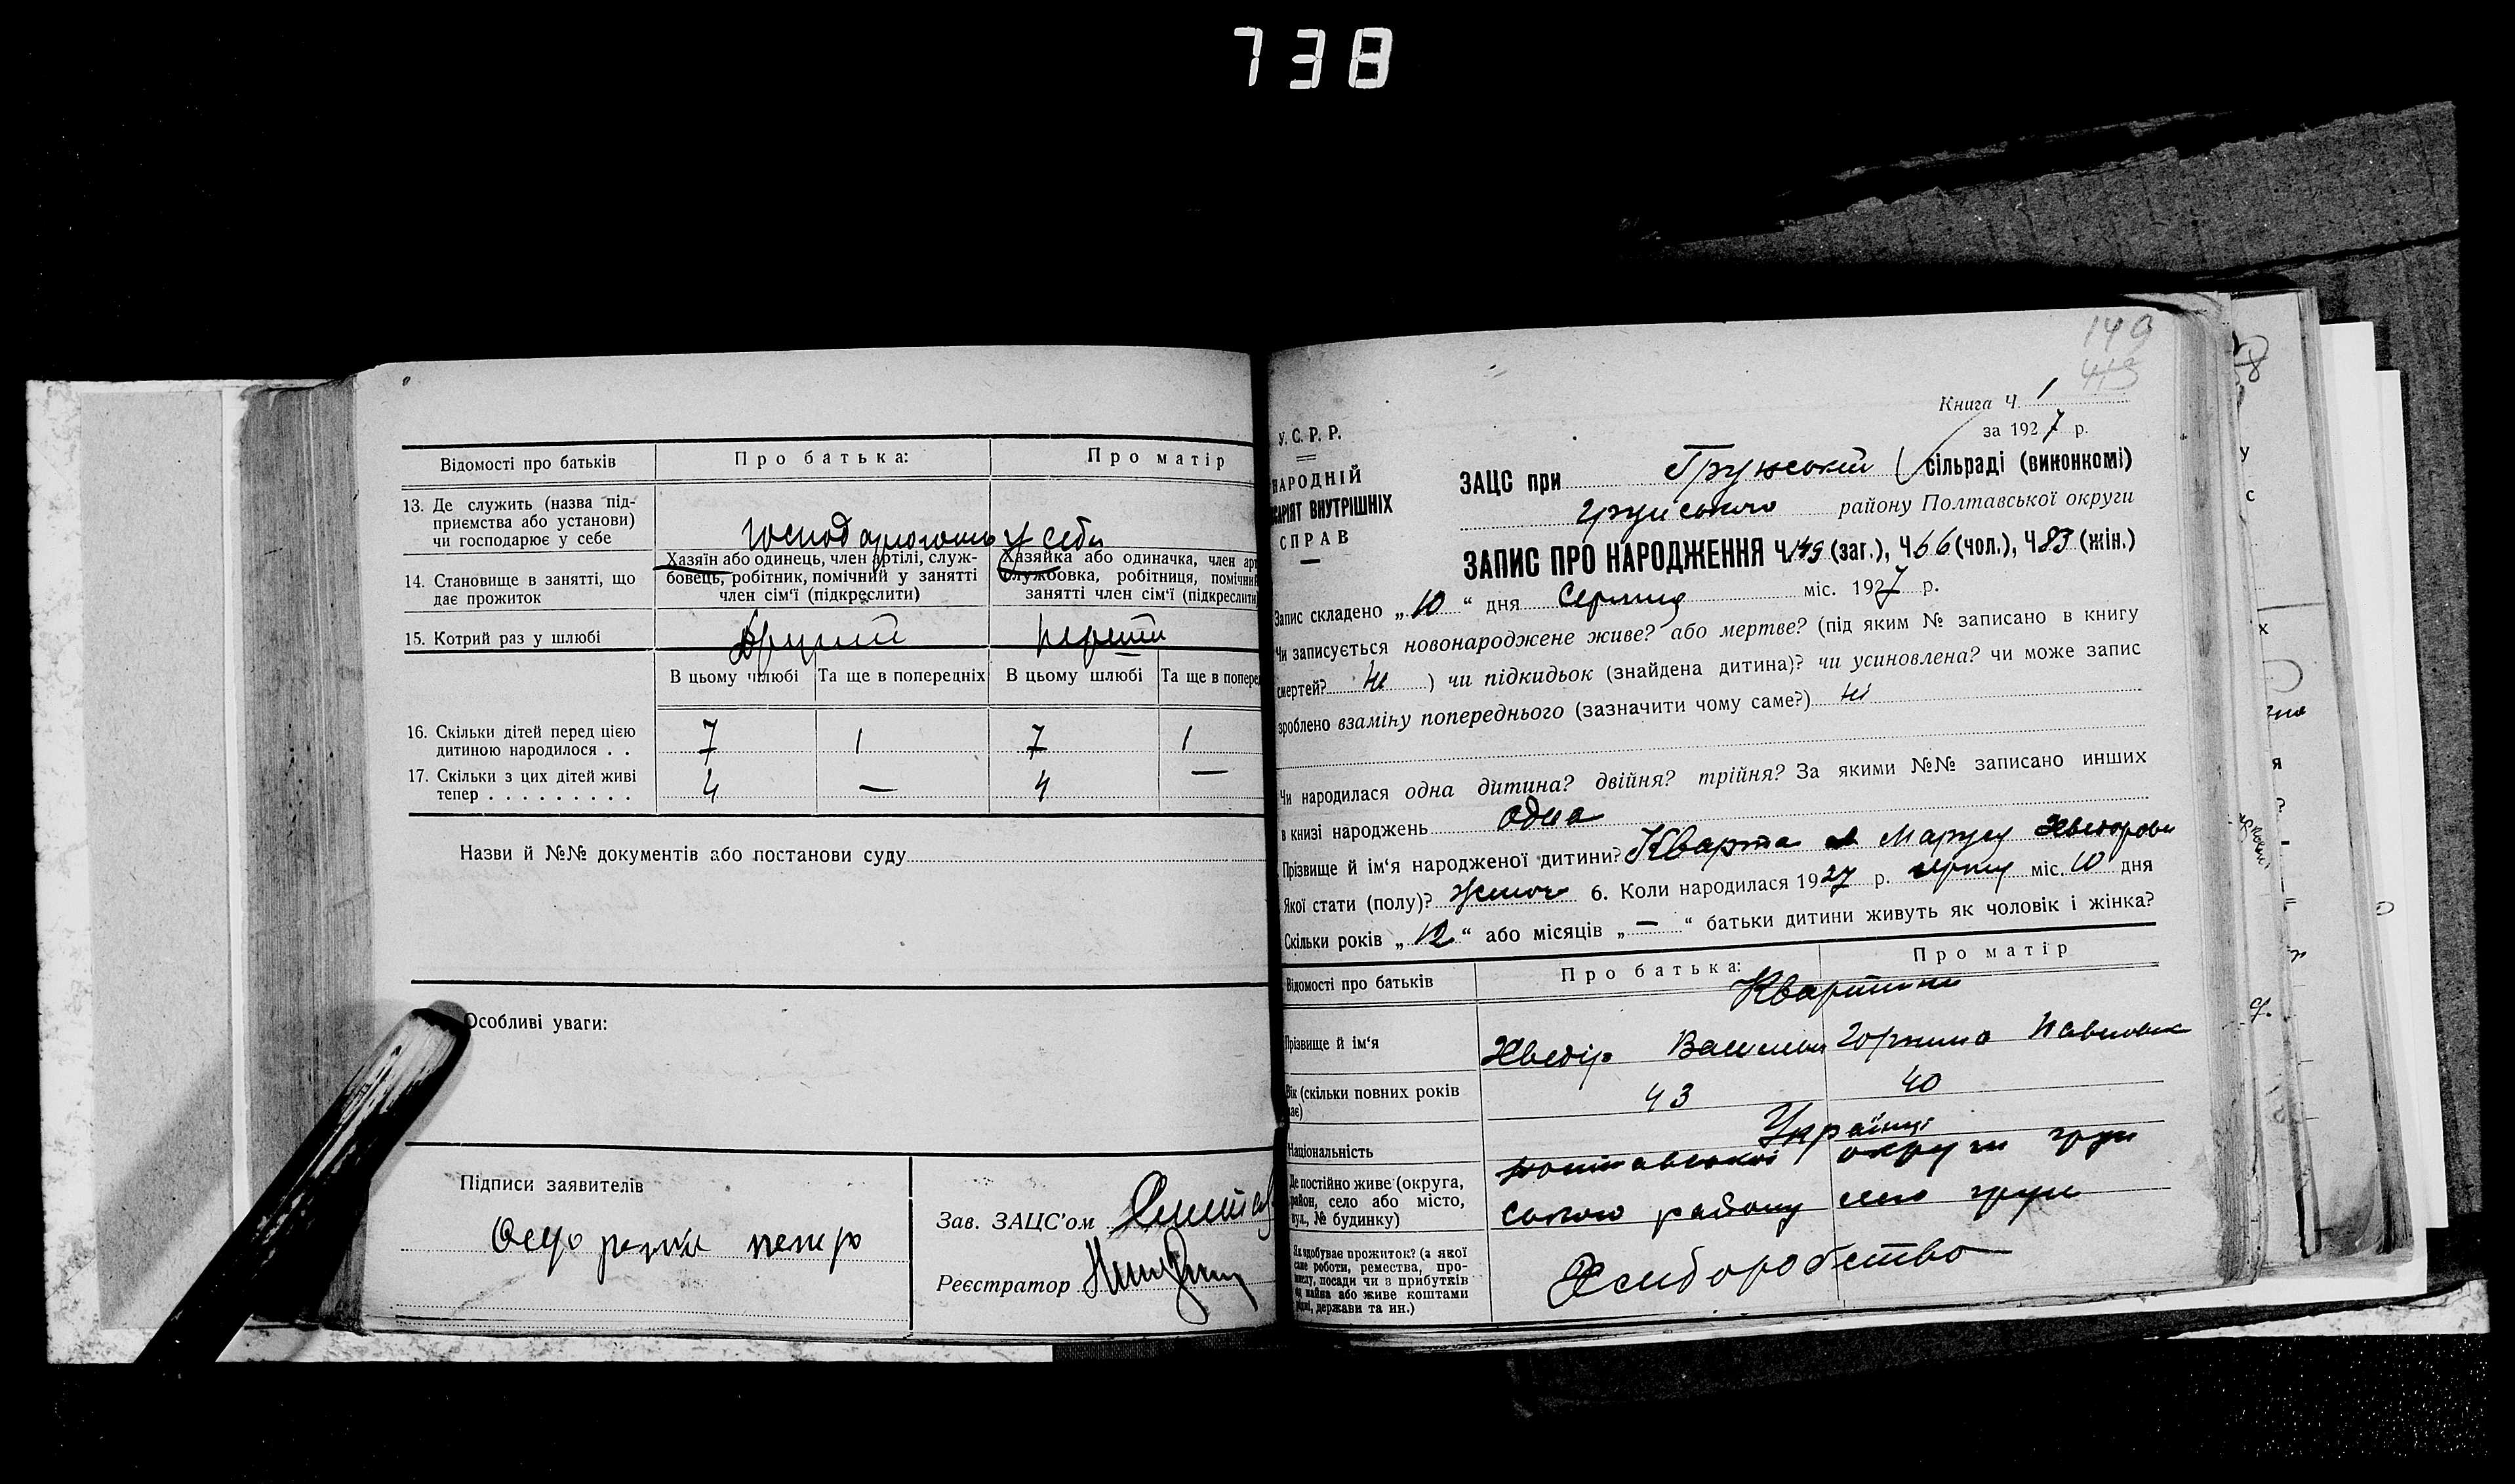 738
Відомості про батьків
Про батька:
Про матір
13. Де служить (назва під-
приємства або установи)
чи господарює у себе
господарюють у себе
14. Становище в занятті, що
дає прожиток
Хазяїн або одинець, член артілі, служ-
бовець, робітник, помічний у занятті
член сім'ї (підкреслити)
Хазяйка або одиначка, член арт
службовка, робітниця, помічний
занятті член сім'ї (підкреслити)
15. Котрий раз у шлюбі
другий
перший
В цьому шлюбі
Та ще в попередніх
В цьому шлюбі
Та ще в поперед
16. Скільки дітей перед цією
дитиною народилося . .
7 1 7 1
17. Скільки з цих дітей живі
тепер . . . . . . . . .
4 — 4 —
Назви й №№ документів або постанови суду
Особливі уваги:
Підписи заявителів
Зав. ЗАЦС'ом
Реєстратор
149
Книга Ч. 1
за 1927 р.
У. С. Р. Р.
НАРОДНІЙ
САРІЯТ ВНУТРІШНІХ
СПРАВ
ЗАЦС при Грунській сільраді (виконкомі)
Грунського району Полтавської округи
ЗАПИС ПРО НАРОДЖЕННЯ Ч. 149 (заг.), Ч. 66 (чол.), Ч. 83 (жін.)
Запис складено „10“ дня Серпня міс. 1927 р.
Чи записується новонароджене живе? або мертве? (під яким № записано в книгу
смертей? ні ) чи підкидьок (знайдена дитина)? чи усиновлена? чи може запис
зроблено взаміну попереднього (зазначити чому саме?) ні
Чи народилася одна дитина? двійня? трійня? За якими №№ записано инших
в книзі народжень одна
Прізвище й ім'я народженої дитини? Кварта Маруся Хведоровн
Якої стати (полу)? жіноч 6. Коли народилася 1927 р. серпня міс. 10 дня
Скільки років „12“ або місяців „—“ батьки дитини живуть як чоловік і жінка?
Відомості про батьків
Про батька:
Про матір
Прізвище й ім'я
Хведір Васильов
Горпина Павловна
Вік (скільки повних років
має)
43
40
Національність
Українці
Де постійно живе (округа,
район, село або місто,
вул., № будинку)
Полтавської округи Грун
ського району село Грунь
Як здобуває прожиток? (з якої
саме роботи, ремества, про-
мислу, посади чи з прибутків
од майна або живе коштами
рідні, держави та ин.)
Хліборобство